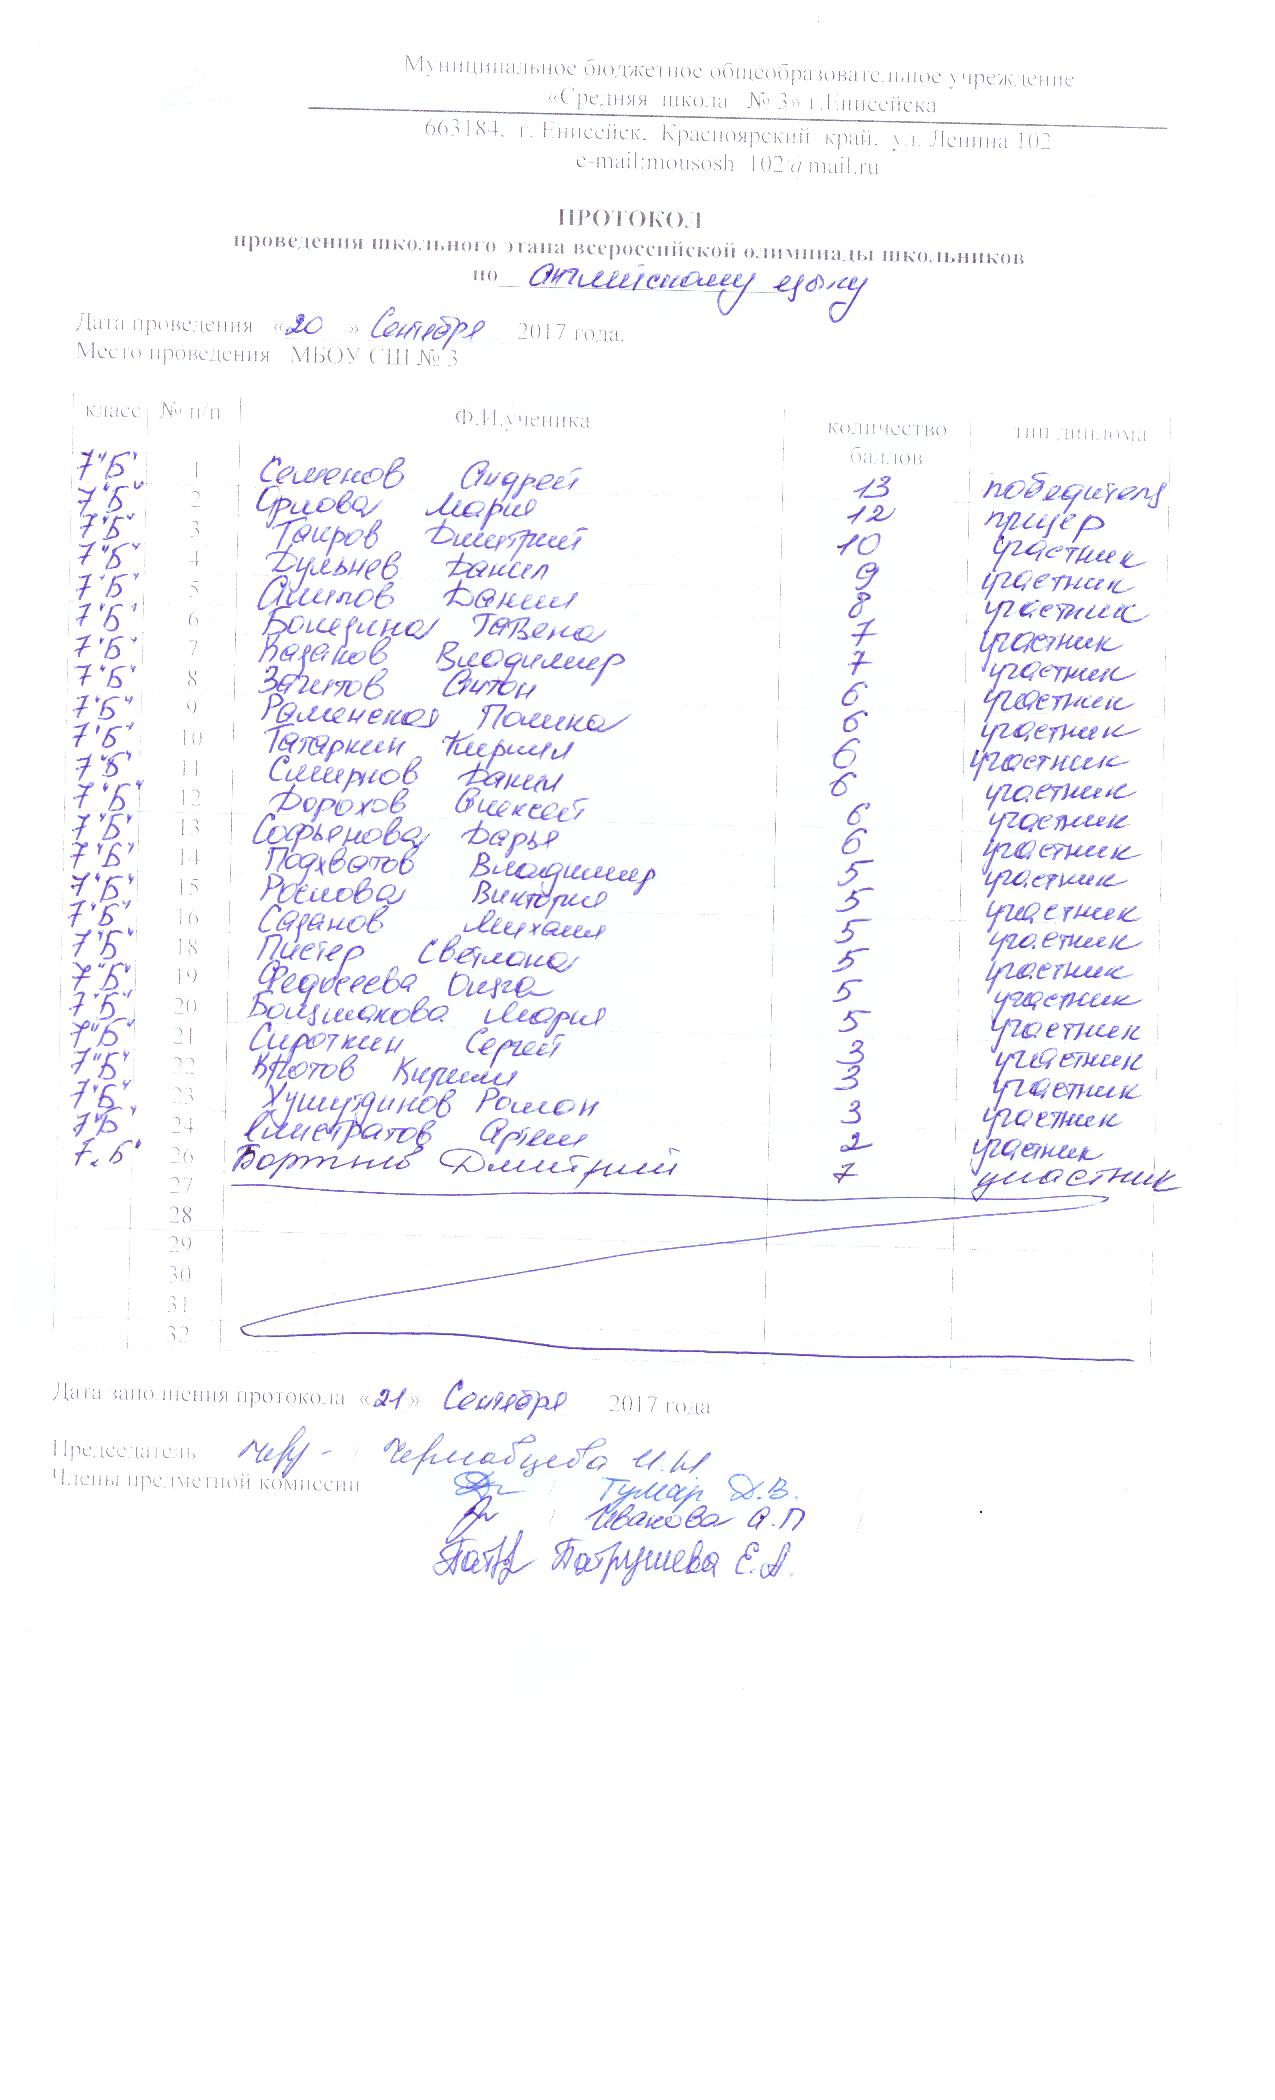 Муниципальное бюджетное общеобразовательное учреждение
«Средняя школа № 3» г.Енисейска
663184, г. Енисейск, Красноярский край, ул. Ленина 102
e-mail:mousosh 102@mail.ru
ПРОТОКОЛ
проведения школьного этапа всероссийской олимпиады школьников
по английскому языку
Дата проведения «20» Сентября 2017 года.
Место проведения МБОУ СШ № 3
класс № п/п Ф.И.ученика количество баллов тип диплома
7"Б" 1 Семенов Андрей 13 победитель
7"Б" 2 Орлова Мария 12 призер
7"Б" 3 Таиров Дмитрий 10 участник
7"Б" 4 Дульнев Данил 9 участник
7"Б" 5 Данил 8 участник
7"Б" 6 7 участник
7"Б" 7 Казаков Владимир 7 участник
7"Б" 8 Загитов Антон 6 участник
7"Б" 9 Раменская Полина 6 участник
7"Б" 10 Татаркин Кирилл 6 участник
7"Б" 11 Смирнов Данил 6 участник
7"Б" 12 Дорохов Алексей 6 участник
7"Б" 13 Софьенова Дарья 6 участник
7"Б" 14 Подхватов Владимир 5 участник
7"Б" 15 Рослова Виктория 5 участник
7"Б" 16 Сазанов Михаил 5 участник
7"Б" 18 Пистер Светлана 5 участник
7"Б" 19 Ольга 5 участник
7"Б" 20 Большакова Мария 5 участник
7"Б" 21 Сироткин Сергей 3 участник
7"Б" 22 Кротов Кирилл 3 участник
7"Б" 23 Роман 3 участник
7"Б" 24 Елистратов Артем 2 участник
7"Б" 26 Дмитрий 7 участник
27
28
29
30
31
32
Дата заполнения протокола «21» Сентября 2017 года
Председатель
Члены предметной комиссии Тумар Д.В.
Иванова А.П
Патрушева Е.А.